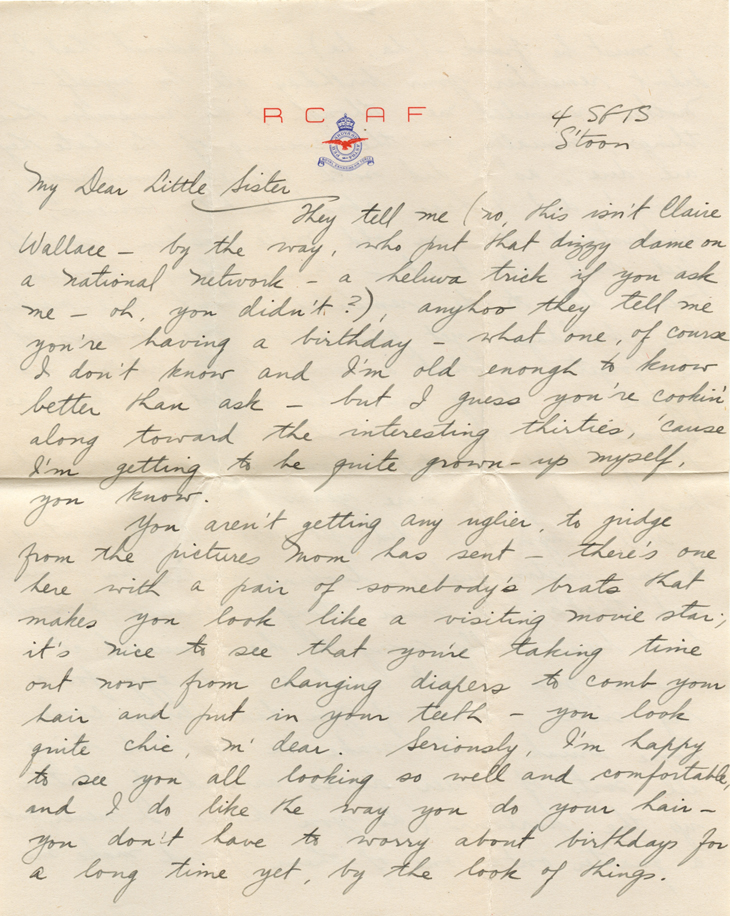 R C A F
4 SFTS
S'toon
My Dear Little Sister
They tell me (no, this isn't Claire
Wallace – by the way, who put that dizzy dame on
a national network – a heluva trick if you ask
me – oh, you didn't?), anyhoo they tell me
you're having a birthday – what one, of course
I don't know and I'm old enough to know
better than ask – but I guess you're cookin'
along toward the interesting thirties, 'cause
I'm getting to be quite grown-up myself,
you know.
You aren't getting any uglier, to judge
from the pictures Mom has sent – there's one
here with a pair of somebody's brats that
makes you look like a visiting movie star;
it's nice to see that you're taking time
out now from changing diapers to comb your
hair and put in your teeth – you look
quite chic, m' dear. Seriously, I'm happy
to see you all looking so well and comfortable,
and I do like the way you do your hair –
you don't have to worry about birthdays for
a long time yet, by the look of things.